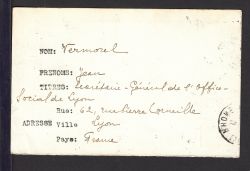 NOM: Vermorel
PRENOMS: Jean
TITRES: Secrétaire-Général de l'Office-
Social de Lyon
Rue: 62, rue Pierre Corneille
ADRESSE Ville Lyon
Pays: France
RHONE